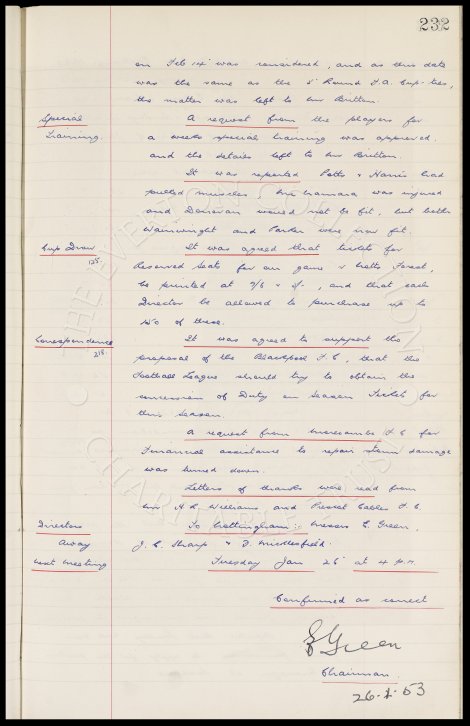 232
on Feb 14 was considered, and as this date
was the same as the 5 Round F.A. Cup-ties,
the matter was left to Mr Britton.
Special Training.
A request from the players for
a weeks special training was approved.
and the details left to Mr Britton.
It was reported Potts & Harris had
pulled muscles, was injured
and Donovan would not be fit, but both
Wainwright and Parker were now fit.
Cup Draw
125.
It was agreed that tickets for
Reserved Seats for our game v Notts Forest,
be printed at 7/6 & 5/-, and that each
Director be allowed to purchase up to
of these.
Correspondence
218.
It was agreed to support the
proposal of the Blackpool F.C, that the
Football League should try to obtain the
concession of Duty on Season Tickets for
this season.
A request from Morecambe F.C for
Financial assistance to repair storm damage
was turned down.
Letters of thanks were read from
Mr A.R Williams, and Prescot Cables F.C.
Directors Away
To Nottingham:- Messrs E. Green,
J.C. Sharp & F. Micklesfield.
next meeting
Tuesday Jan 26 at 4 p.m
Confirmed as correct
E Green
Chairman.
26-1-53
THE EVERTON COLLECTION
CHARITABLE TRUST